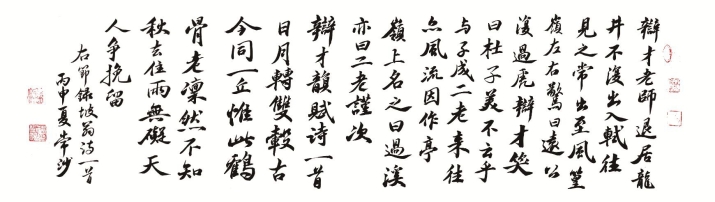 辩才老師退居龍
井不復出入軾往
見之常出至風篁
嶺左右驚曰遠公
復過虎辯才笑
曰杜子美不云乎
与子成二老来往
亦風流因作亭
嶺上名之曰過溪
亦曰二老謹次
辯才韻賦詩一首
日月轉雙轂古
今同一丘惟此鶴
骨老凜然不知
秋去住兩無礙天
人争挽留
右节録坡翁诗一首
丙申夏常沙